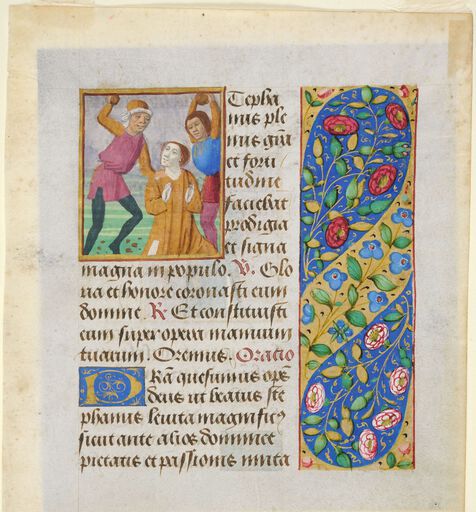 Stepha
nus ple
nus grã
et forti
tudine
faciebat
prodigia
et signa
magna in populo. V. Glo
ria et honore coronasti eum
domine. R. Et constituisti
eum super opera manuum
tuarum. Oremus. Oratio
ORã quesumus ops̃
deus ut beatus ste
phanus levita magnific9
sicut ante alios dominice
pietatis et passionis imita